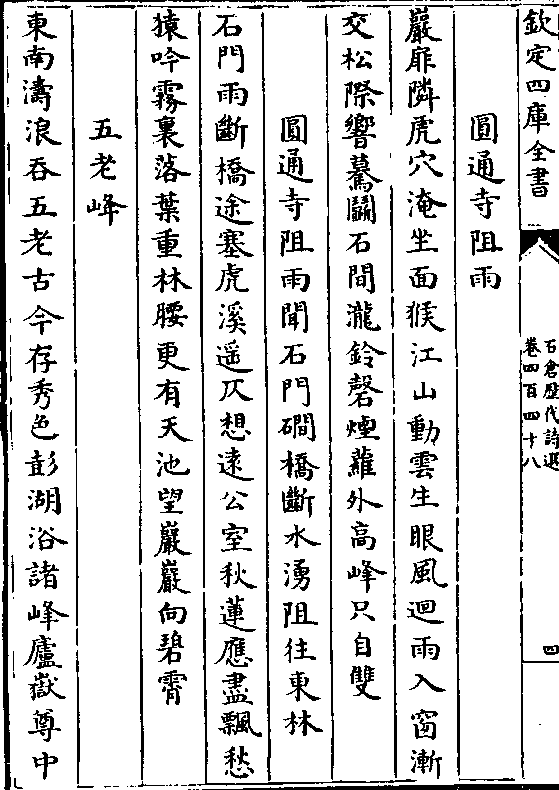 欽定四庫全書
石倉歷代詩選
卷四百四十八
四
圓通寺阻雨
巖扉隣虎穴淹坐面猴江山動雲生眼風迴雨入窗漸
交松際響驀鬭石間瀧鈴磬煙蘿外高峰只自雙
圓通寺阻雨聞石門磵橋斷水湧阻往東林
石門雨斷橋途塞虎溪遥仄想遠公室秋蓮應盡飄愁
猿吟霧裏落葉重林腰更有天池望巖巖向碧霄
五老峰
東南濤浪吞五老古今存秀色彭湖浴諸峰廬嶽尊中